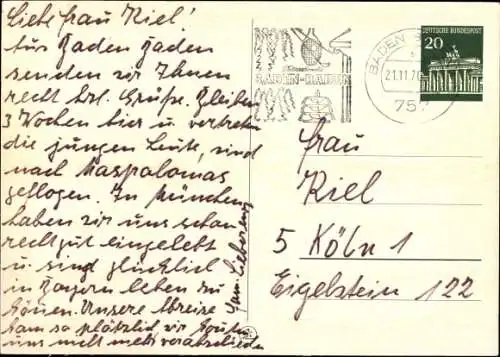 Liebe Frau Kiel!
Aus Baden Baden
senden wir Ihnen
recht hzl. Grüße. Bleiben
3 Wochen hier u. vertreten
die jungen Leute, sind
nach Maspalomas
geflogen. In München
haben wir uns schon
recht gut eingelebt
u. sind glücklich
in Bayern leben zu
können. Unsere Abreise
kam so plötzlich, wir konnten
uns nicht mehr verabschieden
BADEN-BADEN
BADEN
21.11.70
757
DEUTSCHE BUNDESPOST
20
Frau
Kiel
5 Köln 1
Eigelstein 122